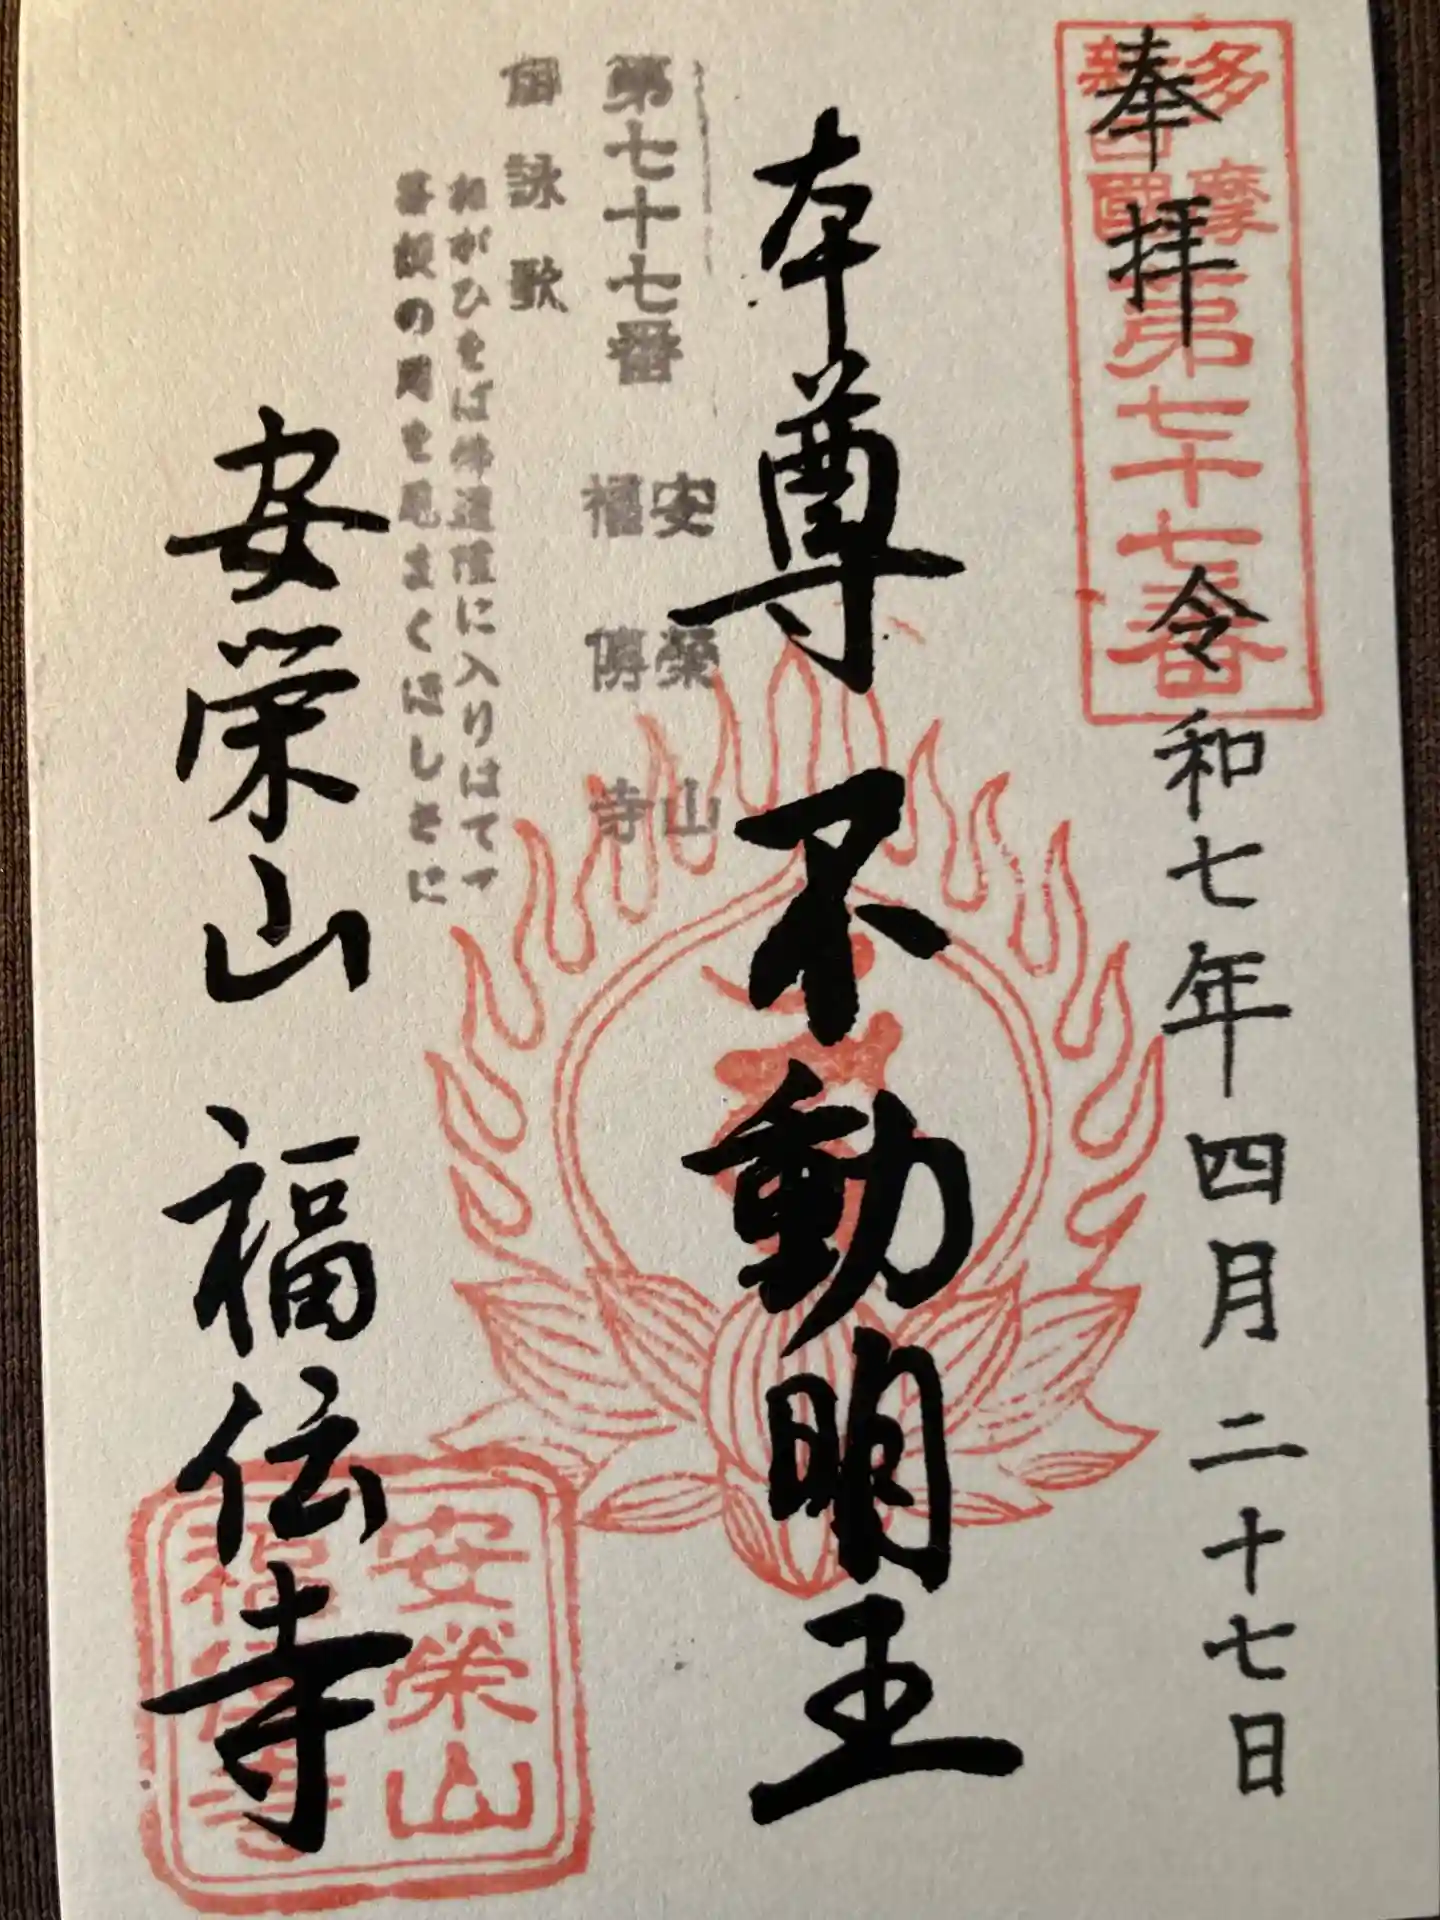 多摩
新四國
第七十七番
奉拝
令和七年四月二十七日
本尊 不動明王
第七十七番
安榮山
福傳寺
御詠歌
ねがひをば佛道隆に入りはてて
菩提の月を見まくほしさに
安栄山 福伝寺
安榮山
福傳寺